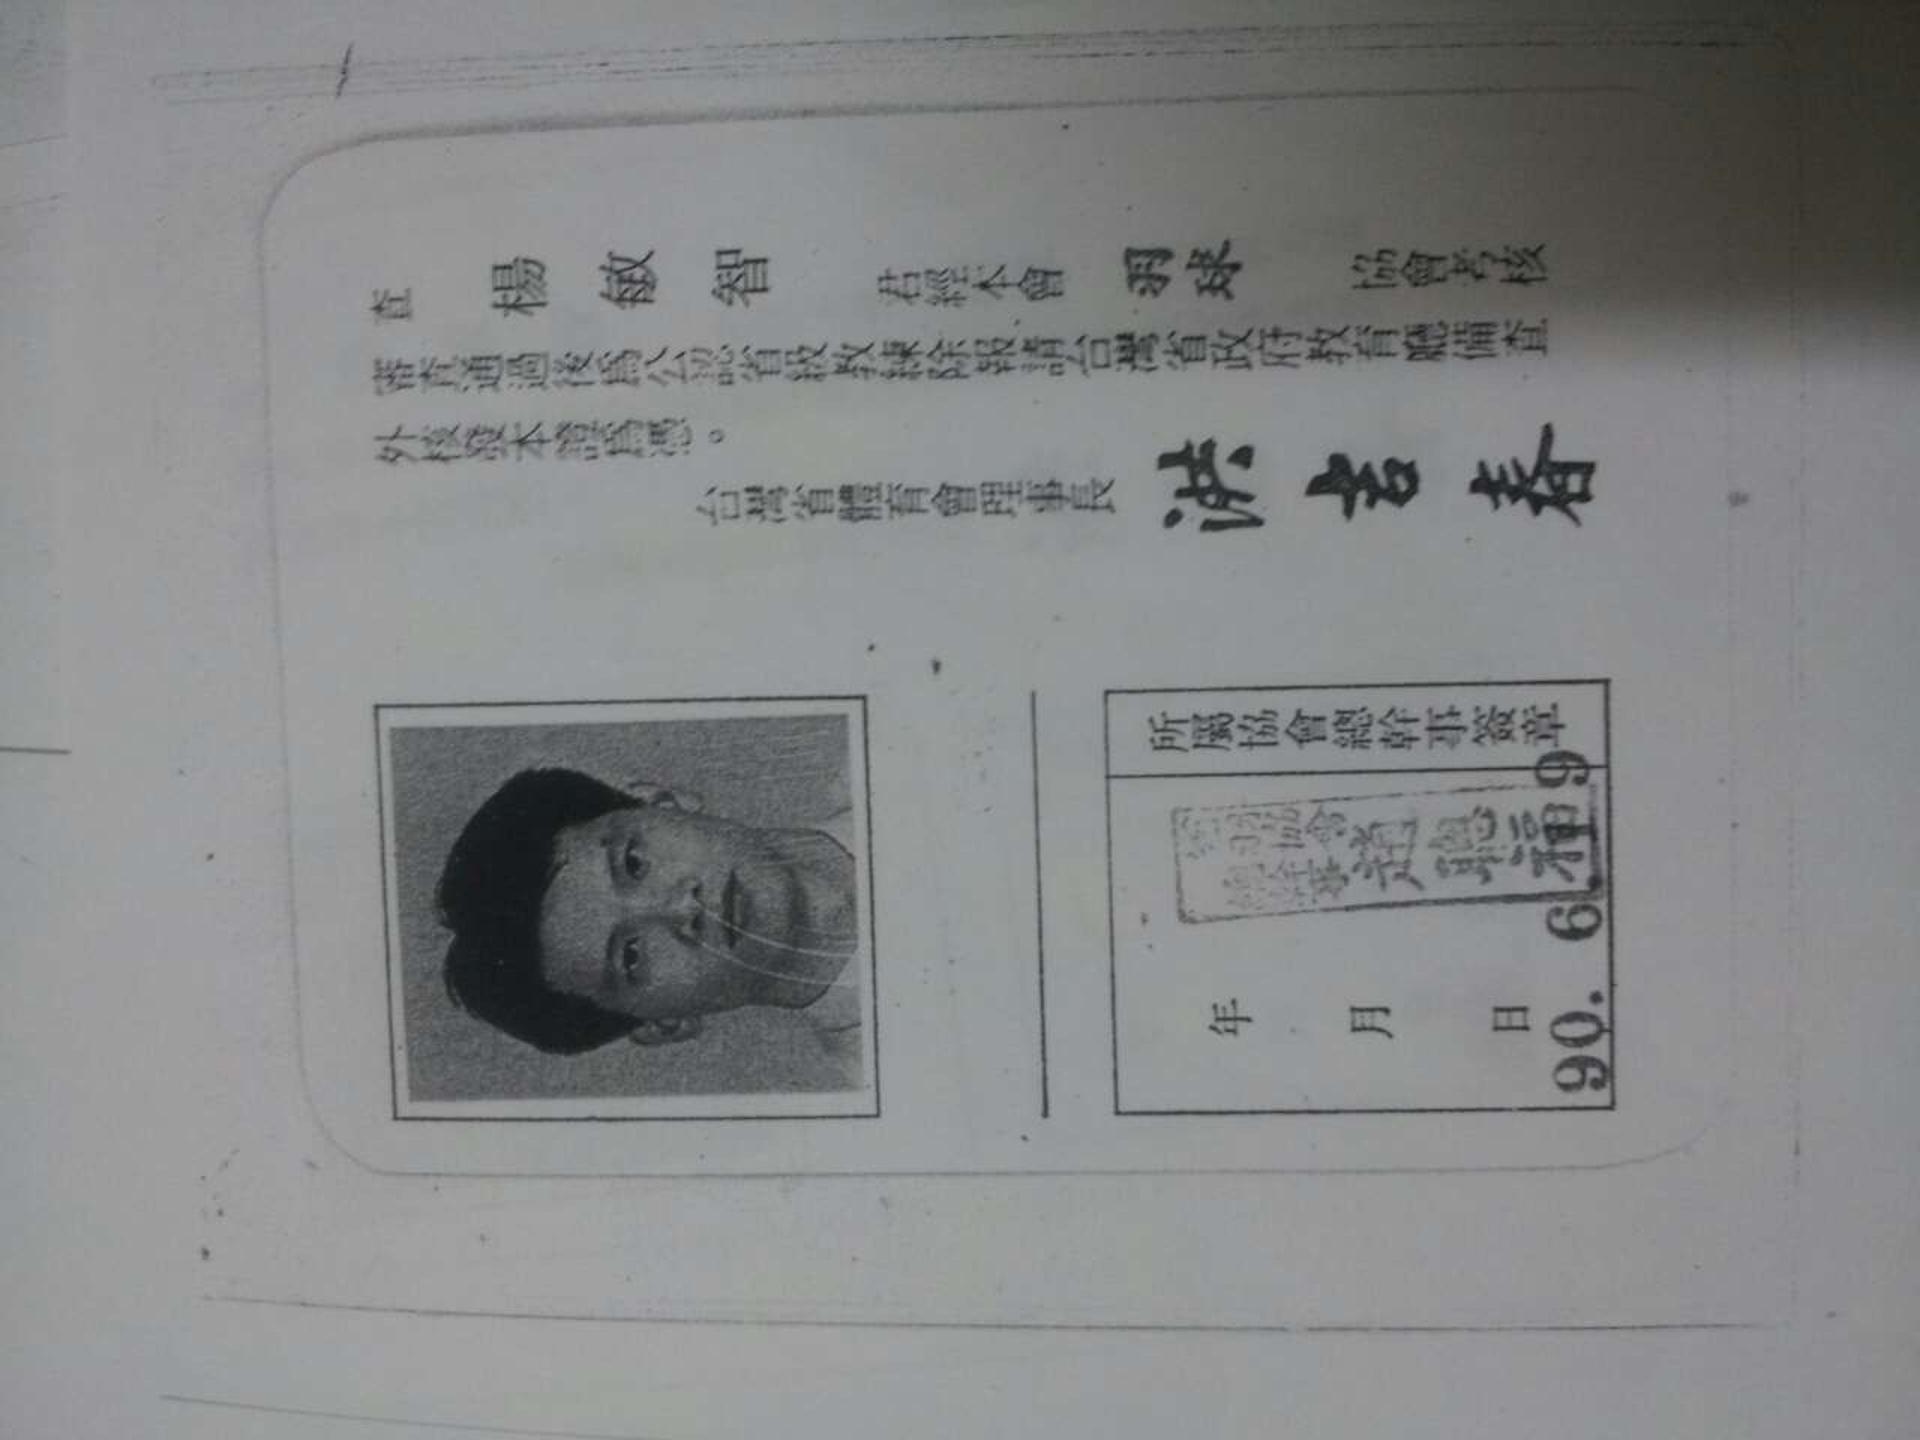 查 楊敏智 君經本會 羽球 協會考核
審查通過後為公認省級教練除報請台灣省政府教育廳備查
外核發本證為憑。
台灣省體育會理事長 洪吉春
所屬協會總幹事簽章
協會
總幹事
年 月 日
90. 6. 19